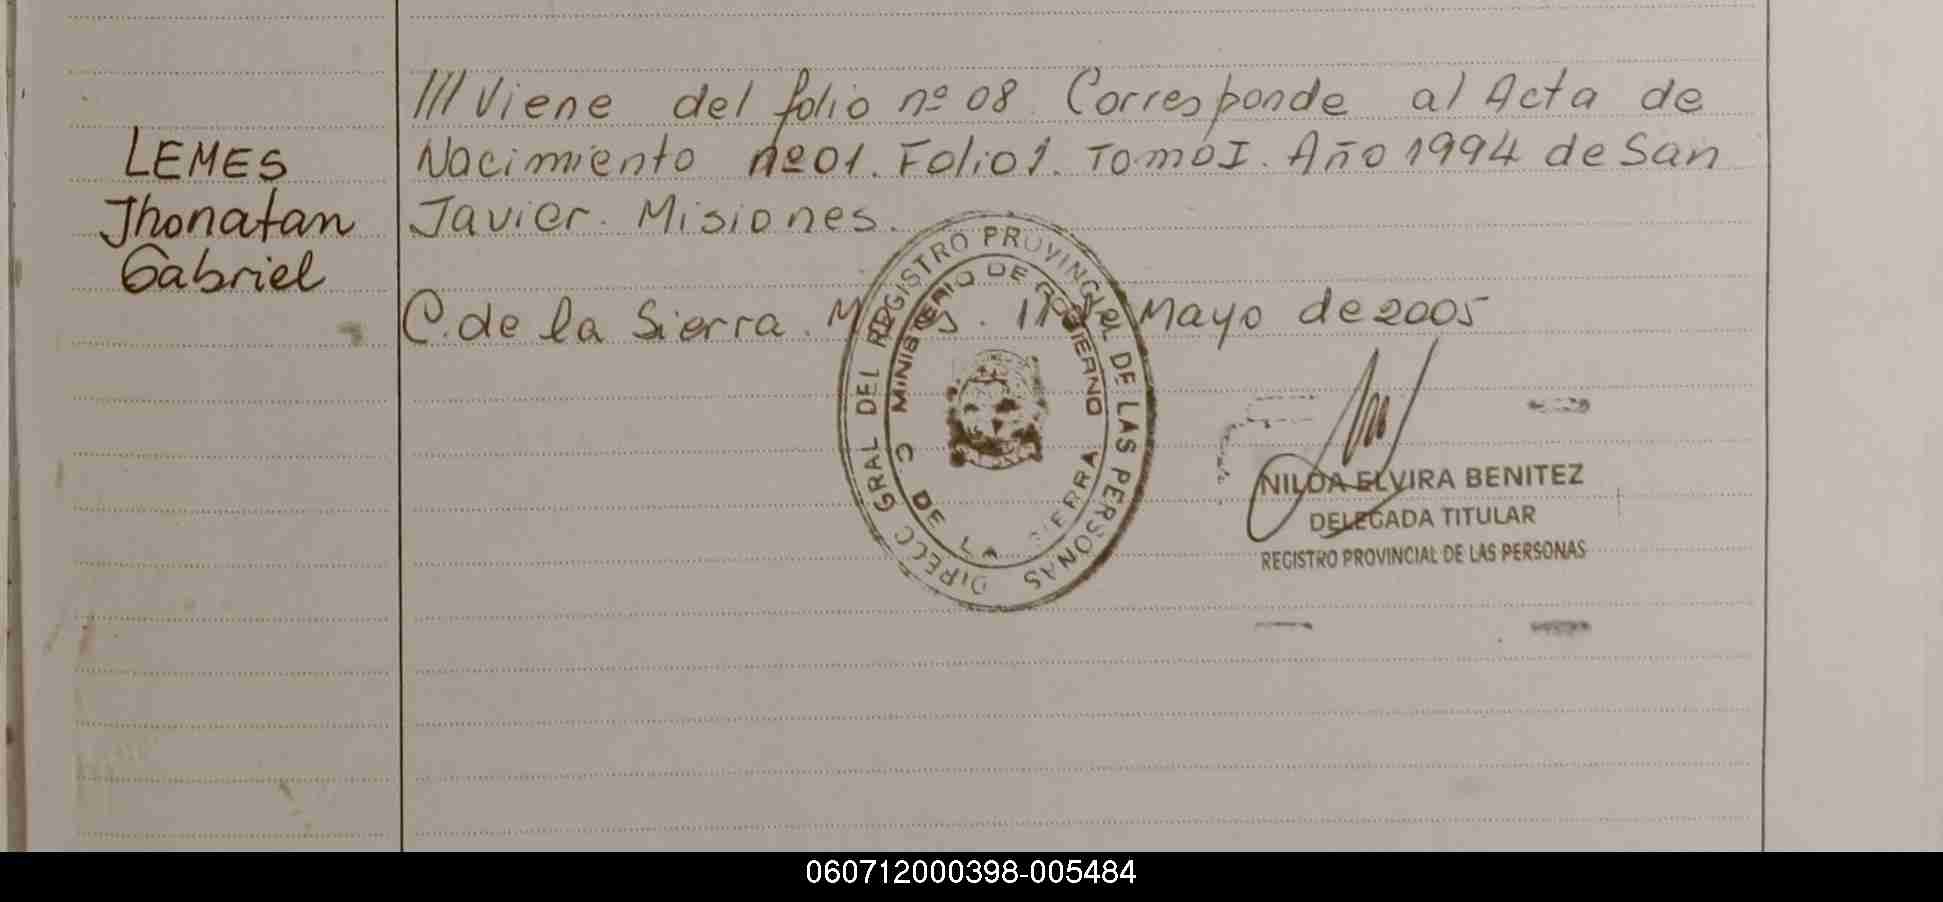 III Viene del folio nº 08 Corresponde al Acta de
Nacimiento nº 01. Folio 1. Tomo I. Año 1994 de San
Javier. Misiones.
LEMES
Jhonatan
Gabriel
C. de la Sierra. de Mayo de 2005
DIRECC GRAL DEL REGISTRO PROVINCIAL DE LAS PERSONAS
MINISTERIO DE GOBIERNO
C DE LA SIERRA
NILDA ELVIRA BENITEZ
DELEGADA TITULAR
REGISTRO PROVINCIAL DE LAS PERSONAS
060712000398-005484